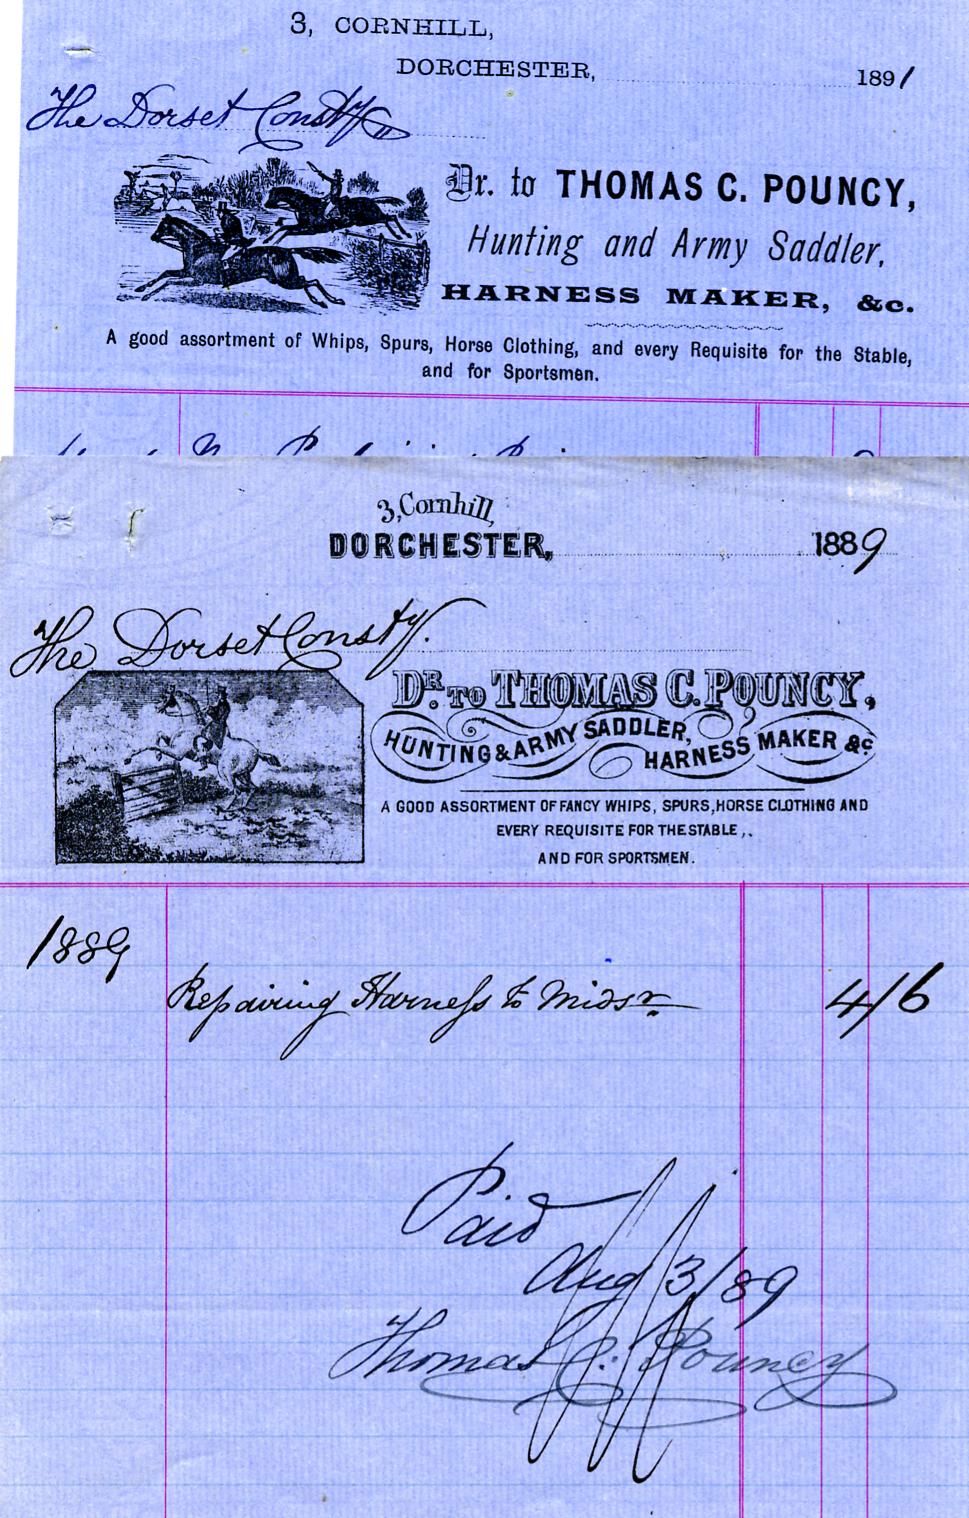 3, CORNHILL,
DORCHESTER, 1891
The Dorset Consty
Dr. to THOMAS C. POUNCY,
Hunting and Army Saddler,
HARNESS MAKER, &c.
A good assortment of Whips, Spurs, Horse Clothing, and every Requisite for the Stable,
and for Sportsmen.
3, Cornhill,
DORCHESTER, 1889
The Dorset Consty.
DR. TO THOMAS C. POUNCY,
HUNTING & ARMY SADDLER,
HARNESS MAKER &c
A GOOD ASSORTMENT OF FANCY WHIPS, SPURS, HORSE CLOTHING AND
EVERY REQUISITE FOR THE STABLE,.
AND FOR SPORTSMEN.
1889
Repairing Harness to 4/6
Paid
Aug 3/89
Thomas C. Pouncy